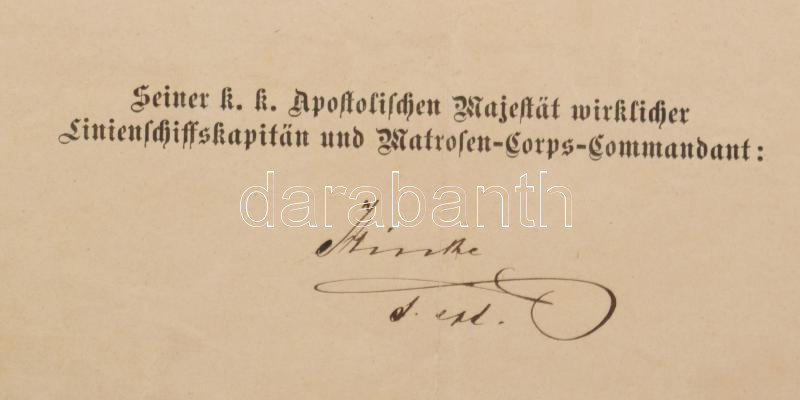 Seiner k. k. Apostolischen Majestät wirklicher
Linienschiffskapitän und Matrosen-Corps-Commandant:
darabanth